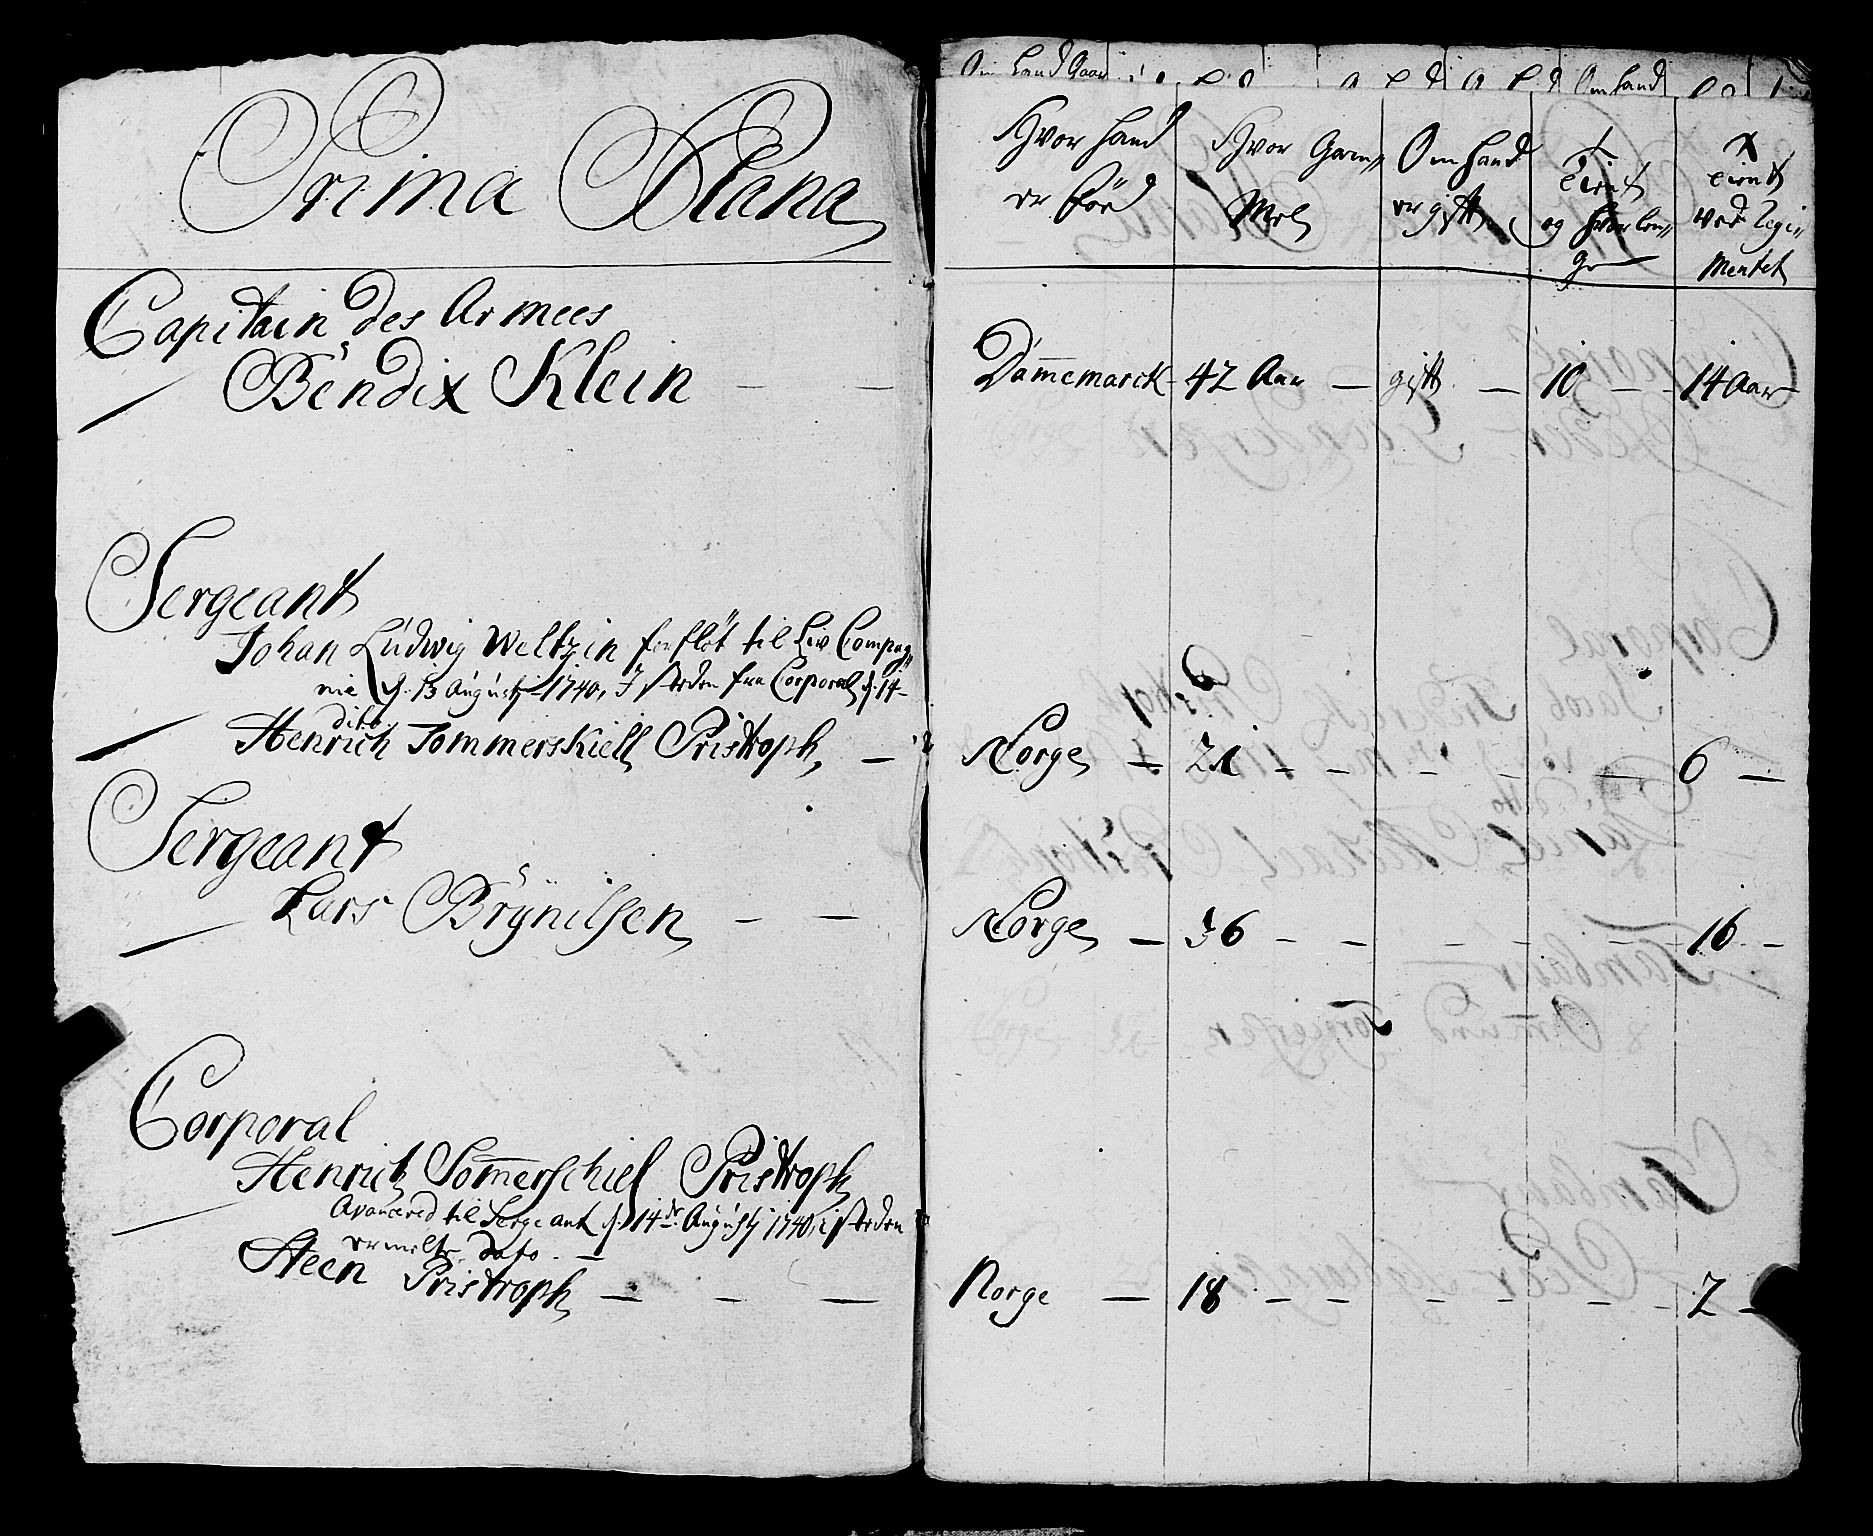 Prima Plana
Capitain des Armees
Bendix Klein — —
Sergeant
Johan Ludwig Weltzin forfløt til Liv Compag„
nie d. 13 Augusti 1740, I steden fra Corporal d. 14
dito
Henrich Sommerskiell Pristroph, —
Sergeant
Lars Brÿnilsen — —
Corporal
Henrich Som̅erschiel Pristroph
Avancered til Sergeant d. 14de Augusti 1740, i steden
ermelte dato. —
Steen Pristroph — — —
Om hand
Hvor hand
er föed
Hvor Gam„
Mel
Om hand
er gift
Tient
og hvorlen„
ge
Tient
ved Regi„
Mentet
Dam̅emarck - 42 Aar — gift — 10 - - 14 Aar
Norge — 21 - - - - - — 6 —
Norge — 36 - - - - - - 16 -
Norge — 18 - - - - - - - 2 —